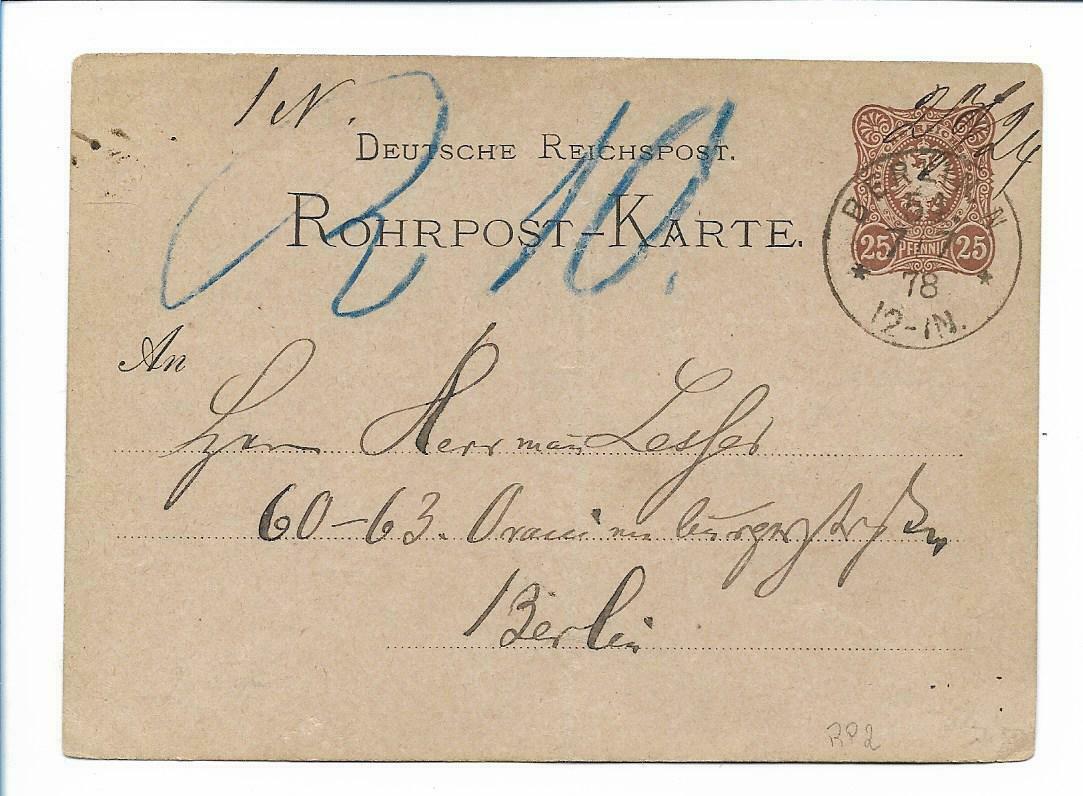 1 N.
DEUTSCHE REICHSPOST.
ROHRPOST-KARTE.
25 PFENNIG 25
BERLIN N
7 7
78
12-1N.
10.
An
Herrn Herrman Lesser
60-63. Oranienburgerstrasse
Berlin
RP2